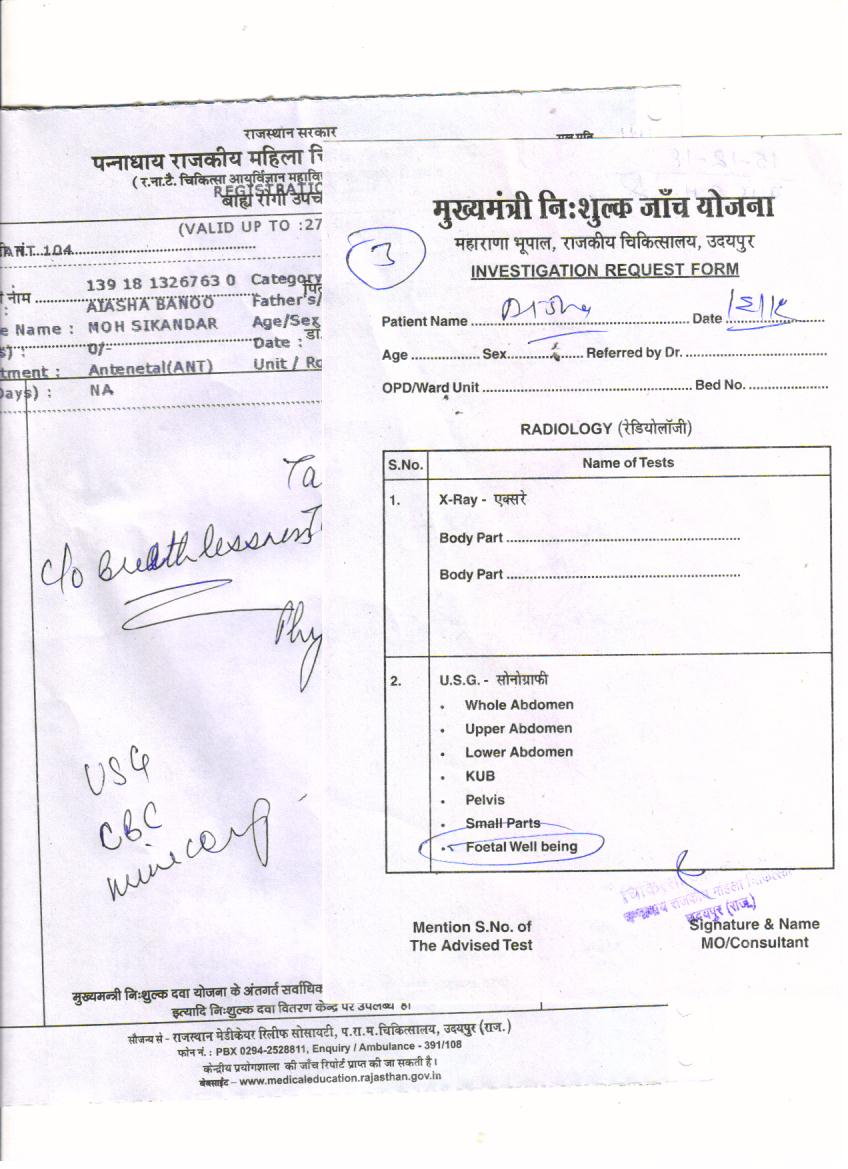 राजस्थान सरकार
पन्नाधाय राजकीय महिला चि
( र.ना.टै. चिकित्सा आयुर्विज्ञान महावि
REGISTRATIO
बाह्य रोगी उपच
(VALID UP TO :27
ANT 104
नाम
139 18 1326763 0 Category
AIASHA BANOO Father's/
e Name : MOH SIKANDAR Age/Sex
s) : 0/- Date :
tment : Antenetal(ANT) Unit / Ro
Days) : NA
Ta
c/o Breathlessness
Phy
USG
CBC
मुख्यमन्त्री निःशुल्क दवा योजना के अंतर्गत सर्वाधिक
इत्यादि निःशुल्क दवा वितरण केन्द्र पर उपलब्ध है।
सौजन्य से - राजस्थान मेडीकेयर रिलीफ सोसायटी, प.रा.म.चिकित्सालय, उदयपुर (राज.)
फोन नं. : PBX 0294-2528811, Enquiry / Ambulance - 391/108
केन्द्रीय प्रयोगशाला की जाँच रिपोर्ट प्राप्त की जा सकती है।
वेबसाईट – www.medicaleducation.rajasthan.gov.in
मुख्यमंत्री निःशुल्क जाँच योजना
महाराणा भूपाल, राजकीय चिकित्सालय, उदयपुर
3
INVESTIGATION REQUEST FORM
Patient Name Date
Age Sex Referred by Dr.
OPD/Ward Unit Bed No.
RADIOLOGY (रेडियोलॉजी)
S.No. Name of Tests
1. X-Ray - एक्सरे
Body Part
Body Part
2. U.S.G. - सोनोग्राफी
• Whole Abdomen
• Upper Abdomen
• Lower Abdomen
• KUB
• Pelvis
• Small Parts
• Foetal Well being
उदयपुर (राज.)
Mention S.No. of
The Advised Test
Signature & Name
MO/Consultant